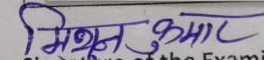 मिथुन कुमार
of the Exami